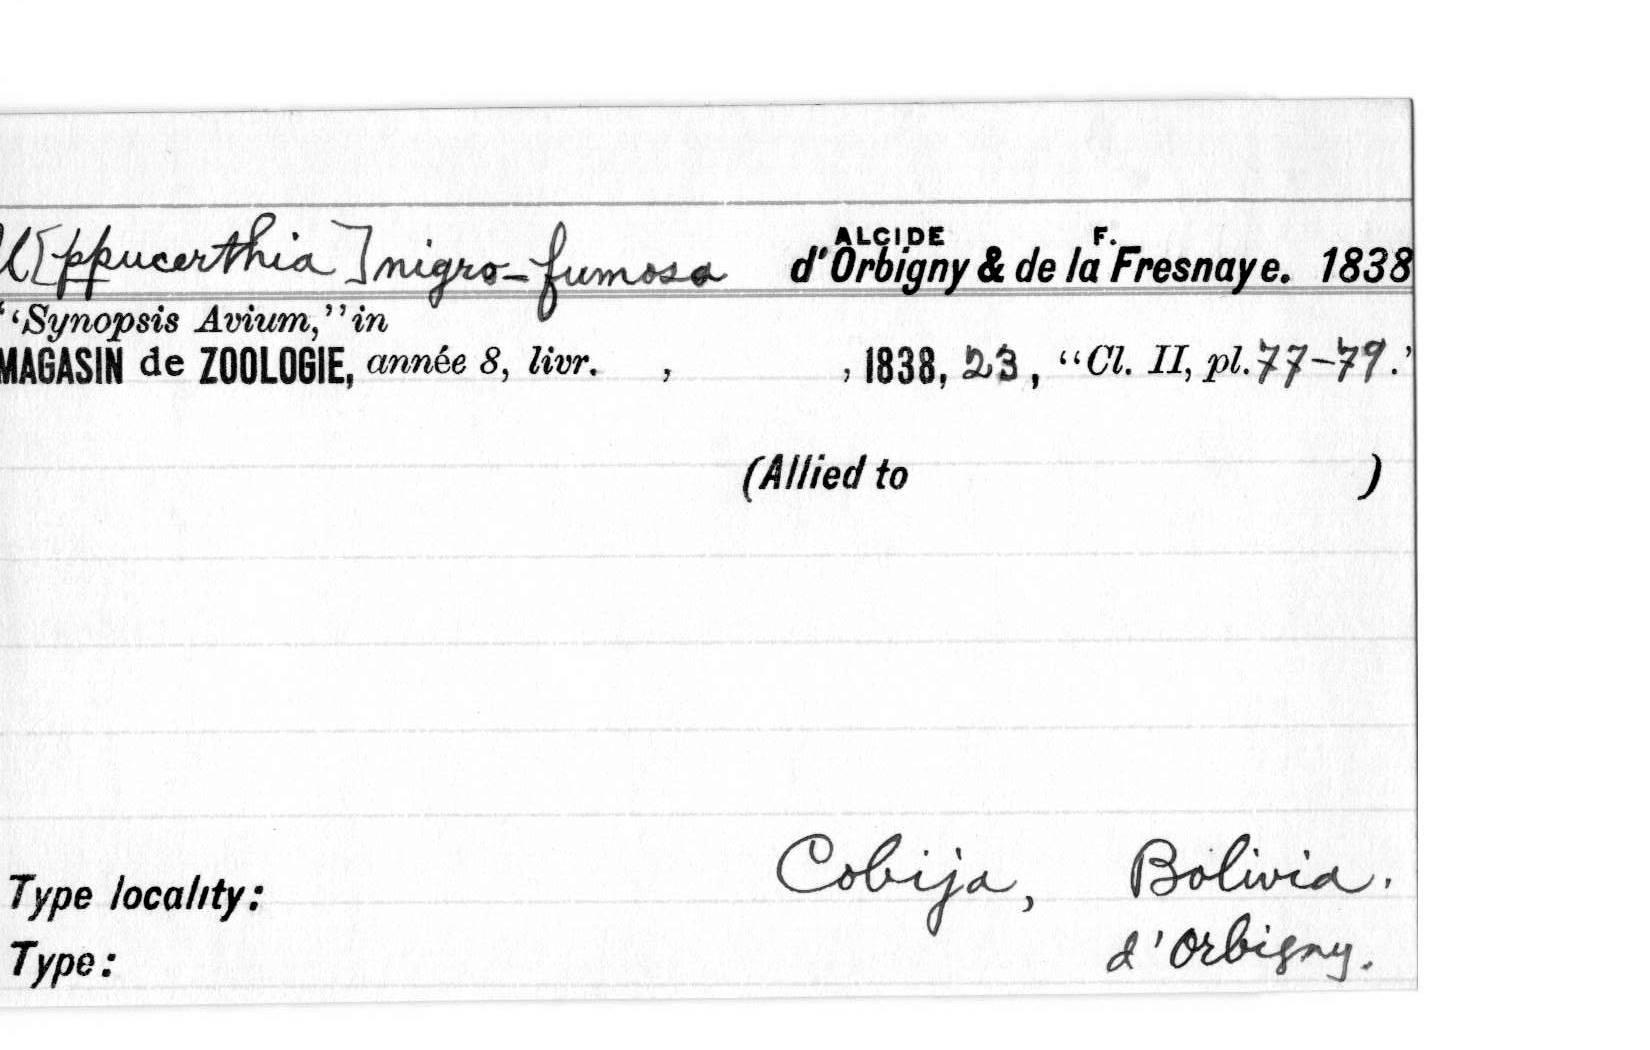 U[ppucerthia] nigro-fumosa ALCIDE d'Orbigny & F. de la Fresnaye. 1838
"Synopsis Avium," in
MAGASIN de ZOOLOGIE, année 8, livr. , , 1838, 23, "Cl. II, pl. 77-79."
(Allied to )
Type locality: Cobija, Bolivia.
Type: d'Orbigny.